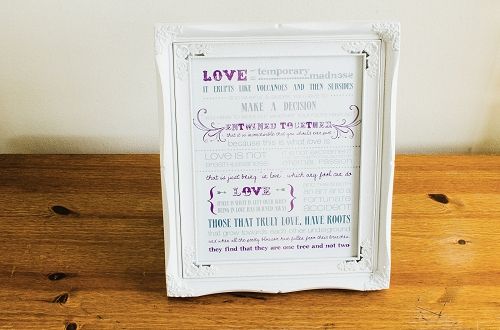 LOVE is a temporary madness
IT ERUPTS LIKE VOLCANOES AND THEN SUBSIDES
MAKE A DECISION
ENTWINED TOGETHER
that it is inconceivable that you should ever part
because this is what love is
LOVE IS NOT
BREATHLESSNESS
that is just being in love, which any fool can do
LOVE
ITSELF IS WHAT IS LEFT OVER WHEN
BEING IN LOVE HAS BURNED AWAY
an art and a
fortunate
accident
THOSE THAT TRULY LOVE, HAVE ROOTS
that grow towards each other underground
and when all the pretty blossom have fallen from their branches
they find that they are one tree and not two